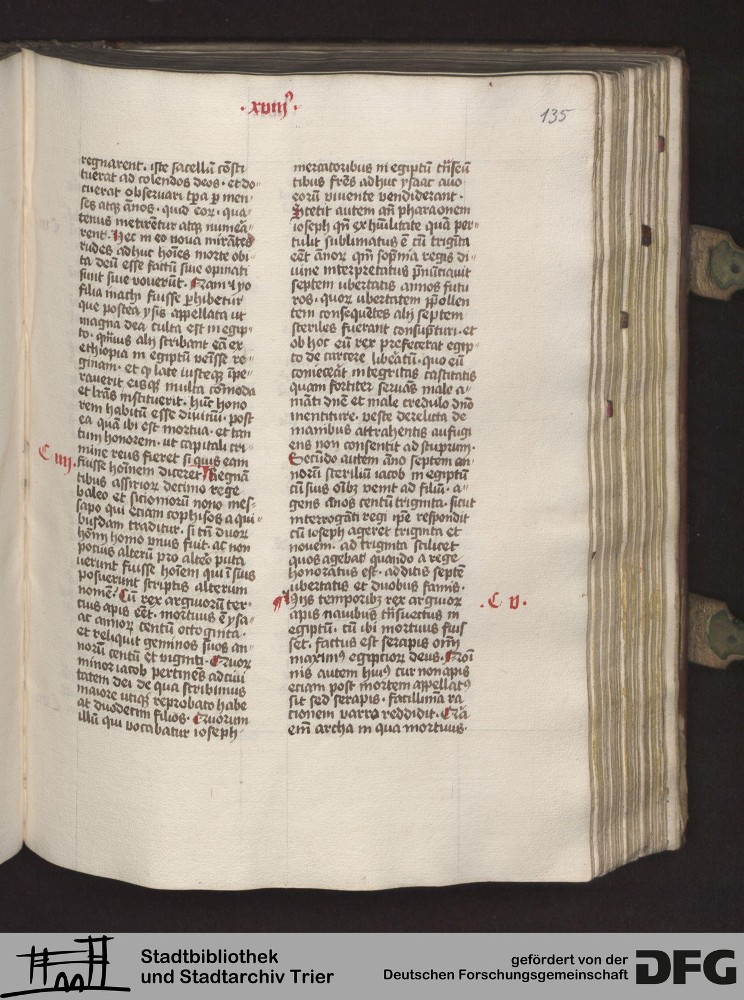 ·xviij·
135
regnarent · iste sacellū cōsti
tuerat ad colendos deos · et do
cuerat observari tp̄a p men
ses atq; ānos · quid eoꝝ · qua
tenus metirētur atq; numēa
rent · Hec in eo nova mirātes
rudes adhuc hoīes morte obi
ta deū esse factū sive opinati
sunt sive voverūt · Nam τ yo
filia machi fuisse ꝑhibetur
que postea ysis appellata ut
magna dea culta est in egip
to · q̄mvis alij scribant eā ex
ethiopia in egiptū venisse re
ginam · et ꝙ late iusteq; īpe
raverit eisq; multa cōmoda
et lr̄as instituerit · hūc hono
rem habitū esse divinū · post
ea quā ibi est mortua · et tan
tum honorem · ut capitali cri
mine reus fieret si quis eam
C iiij·
fuisse hoīnem diceret Regnā
tibus assirioꝝ decimo rege
baleo et sicionioꝝ nono mes
sapo qui etiam cephisos a qui
busdam traditur · si tn̄ duoꝝ
hoīm homo unus fuit · ac non
pocius alterū pro altēo puta
verunt fuisse hoīem qui ī suis
posuerunt scriptis alterum
nomē · Cū rex argivoꝝ ter
cius apis eēt · mortuus ē ysa
ac annoꝝ centū octoginta ·
et reliquit geminos suos an
noꝝ centū et viginti · Quoꝝ
minor iacob pertinēs ad civi
tatem dei de qua scribimus
maiore utiq; reprobato habe
at duodecim filios · Quorum
illū qui vocabatur ioseph
mercatoribus in egiptū trāseū
tibus fr̄es adhuc ysaac avo
eoꝝ vivente vendiderant ·
Stetit autem an̄ pharaonem
ioseph qn̄ ex hūilitate quā per
tulit sublimatus ē cū triginta
eēt ānoꝝ qm̄ sōpnia regis di
vine interpretatus p̄nūciavit
septem ubertatis annos futu
ros · quoꝝ ubertatem p̄pollen
tem consequētes alij septem
steriles fuerant consūpturi · et
ob hoc eū rex prefecerat egip
to de carcere libēatū · quo eū
coniecēat integritas castitatis
quam fortiter servās male a
māti dn̄e et male credulo dn̄o
mentiture · veste derelicta de
manibus attrahentis aufugi
ens non consentit ad stuprum ·
Secūdo autem āno septem an
noꝝ steriliū iacob in egiptū
cū suis oībꝫ venit ad filiū · a
gens ānos centū triginta · sicut
interrogāti regi ip̄e respondit
cū ioseph ageret triginta et
novem · ad triginta scilicet
quos agebat quando a rege
honoratus est · additis septē
ubertatis et duobus famis ·
Hijs temporibꝫ rex argivoꝝ
C v·
apis navibus trāsvectus in
egiptū · cū ibi mortuus fuis
set · factus est serapis oīm
maximꝰ egiptioꝝ deus · Noī
nis autem hujꝰ cur non apis
etiam post mortem appellatꝰ
sit sed serapis · facillimā ra
cionem varro reddidit · Quia
enī archa in qua mortuus ·
Stadtbibliothek
und Stadtarchiv Trier
gefördert von der
Deutschen Forschungsgemeinschaft
DFG